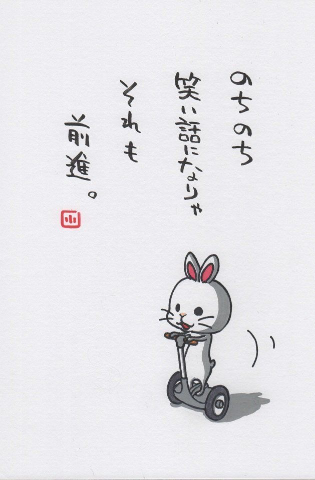 のちのち
笑い話になりゃ
それも
前進。
小